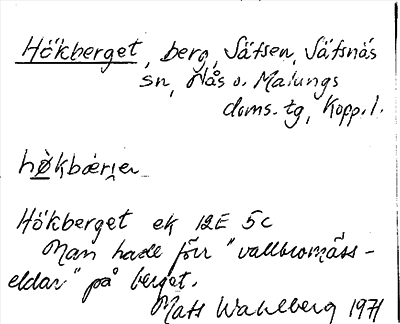 Hökberget, berg, Säfsen, Säfsnäs
sn, Nås o. Malungs
doms. tg, Kopp. l.
hø̀kbærjen
Hökberget ek 12E 5c
Man hade förr "vallbromäss-
eldar" på berget.
Mats Wahlberg 1971